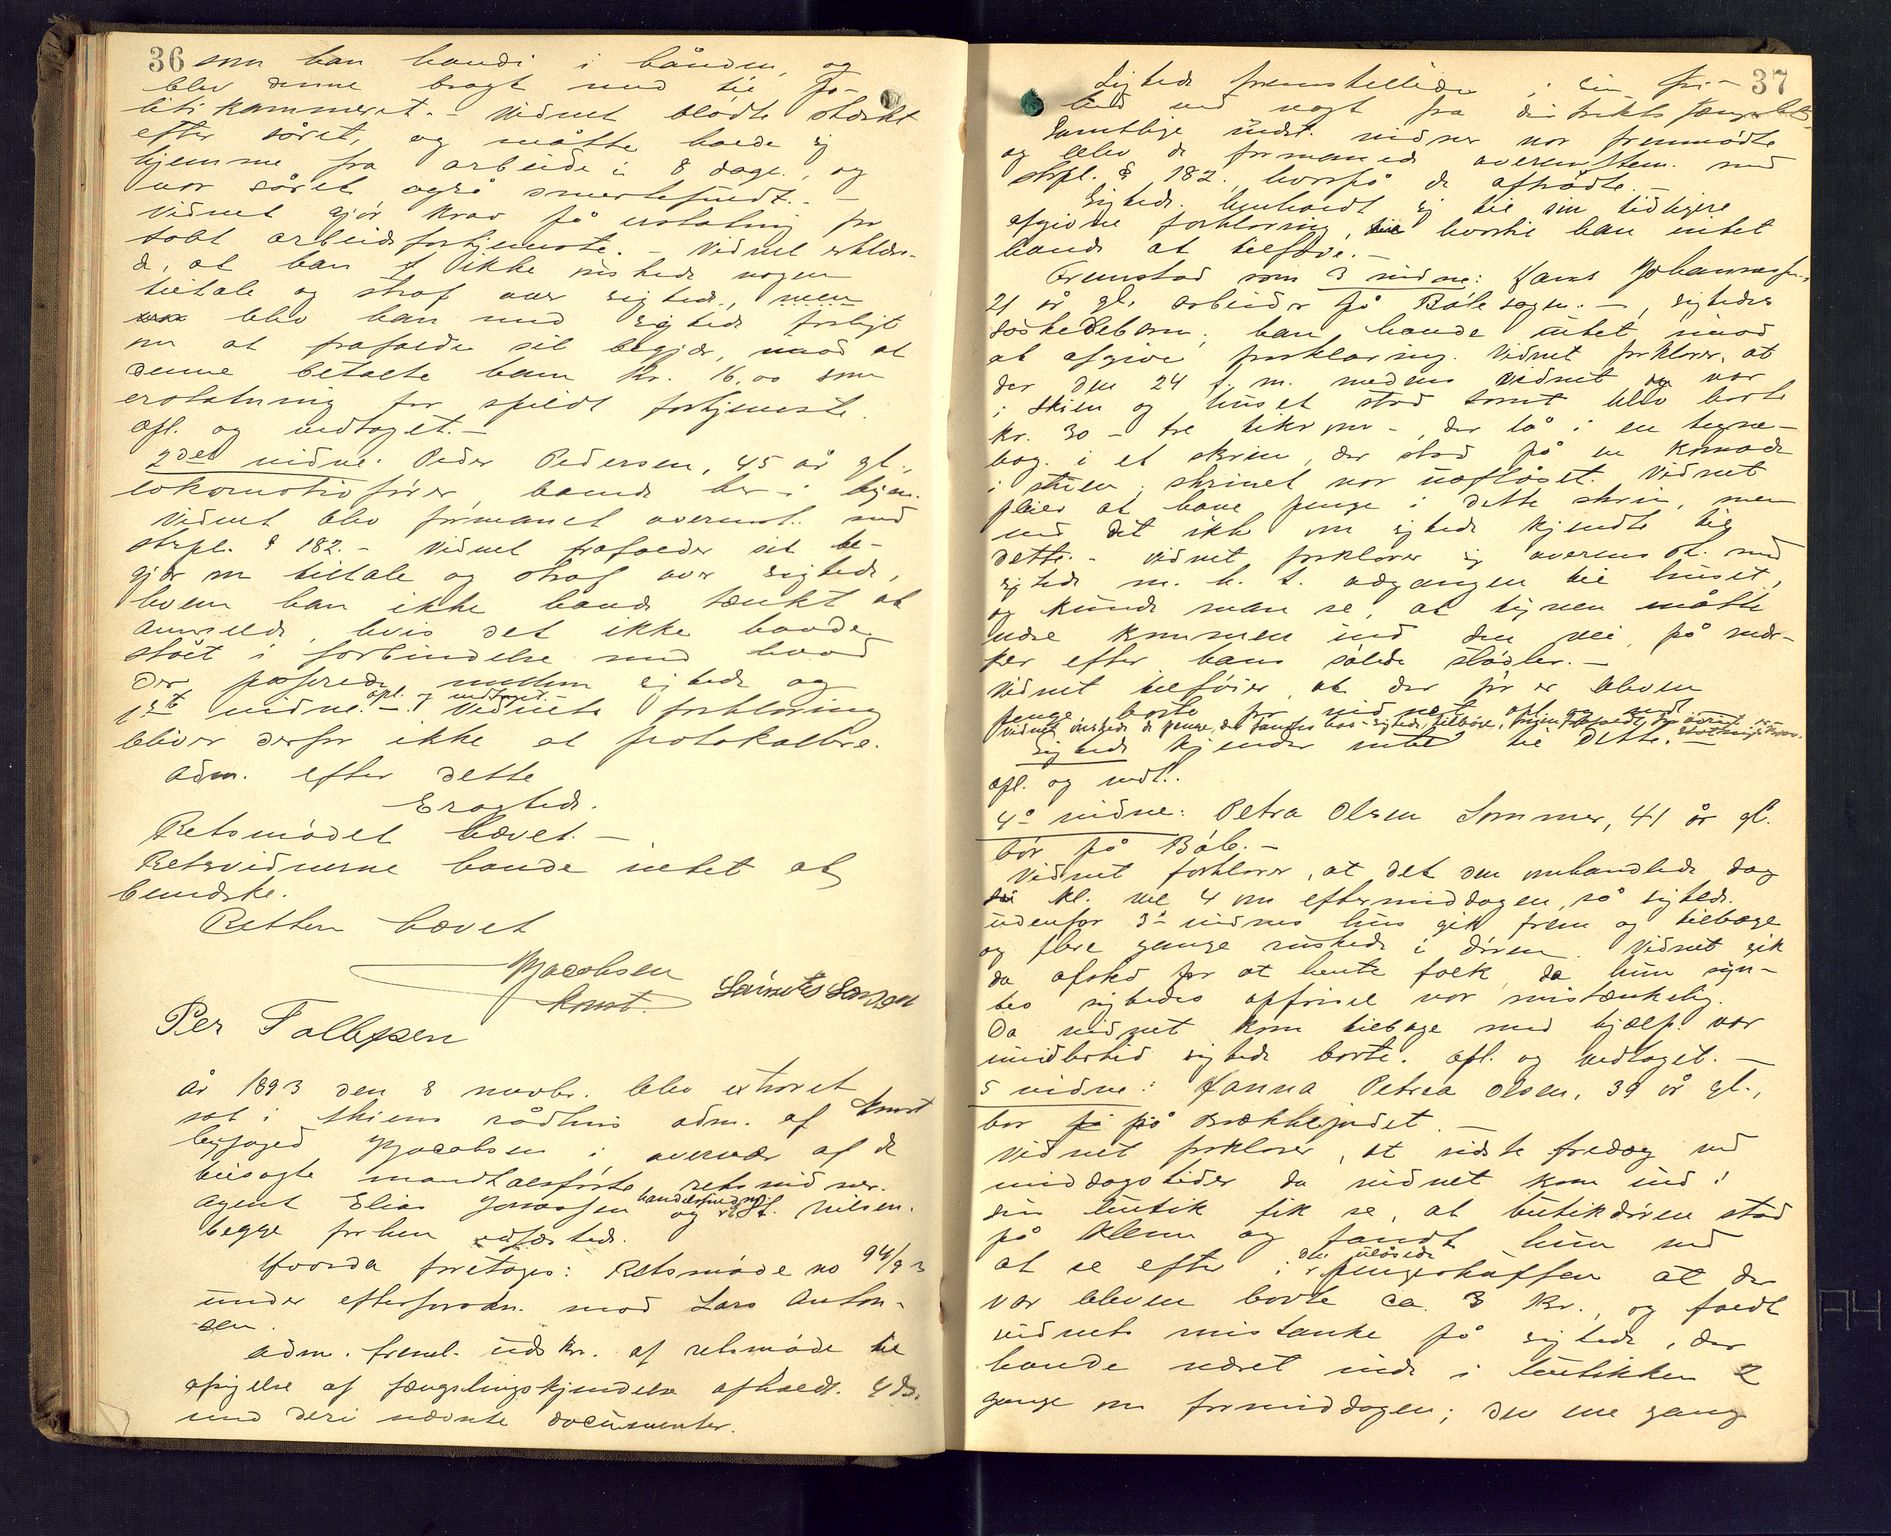 36 som han havde i hånden, og
blev denne bragt med til po-
litikammeret. - Vidnet blødte stærkt
efter såret, og måtte holde sig
hjemme fra arbeide i 8 dage, og
var såret også smertefuldt. -
Vidnet gjør krav på erstatning for
tabt arbeidsfortjeneste. - Vidnet erklære-
de, at han ikke ønskede nogen
tiltale og straf over sigtede, men
blev han med sigtede forligt
om at frafalde sit begjær, mod at
denne betalte ham kr. 16,00 som
erstatning for spildt fortjeneste.
opl. og vedtaget. -
2det vidne: Peder Pedersen, 45 år gl.,
lokomotivfører, boende her i byen.
Vidnet blev formanet overenst. med
strpl. § 182. - Vidnet frafalder sit be-
gjær om tiltale og straf over sigtede,
hvem han ikke havde tænkt at
anmelde, hvis det ikke havde
stået i forbindelse med hvad
der passerede mellem sigtede og
opl. og vedtaget. -
1ste vidne. - Vidnets forklaring
bliver derfor ikke at protokollere.
Adm. efter dette
Eragted.
Retsmødet hævet. -
Retsvidnerne havde intet at
bemærke.
Retten hævet
Jacobsen
konst.
Per Tollefsen
År 1893 den 8 novbr. blev extraret
sat i Skiens rådhus adm. af konst
byfoged Jacobsen i overvær af de
beisagte mandtalsførte retsvidner.
agent Elias Jonassen og handelsfuldm. Nilsen.
begge forhen edfæstede.
Hvorda foretoges: Retsmøde no 94/93
under efterforskn. mod Lars Anton-
sen.
Adm. freml. udskr. af retsmøde til
afsigelse af fængslingskjendelse afholdt 4ds.
med deri nævnte documenter.
37
Sigtede fremstilledes i sin fri-
hed med vagt fra distriktsfængslet.
Samtlige indst. vidner var fremmødte
og blev de formanede overenstem. med
strpl. § 182. hvorpå de aftrådte. -
Sigtede henholdt sig til sin tidligere
afgivne forklaring, hvortil han intet
havde at tilføie. -
Fremstod som 3 vidne: Hans Johannesen,
21 år gl. arbeider på Bølesagen. -, sigtedes
søskendebarn; han havde intet imod
at afgive forklaring. Vidnet forklarer, at
der den 24 f. m. medens vidnet var
i Skien og huset stod tomt blev borte
kr. 30 - tre tikroner -, der lå i en tegne-
bog i et skrin, der stod på en komode
i stuen; skrinet var uaflåset. Vidnet
pleier at have penge i dette skrin, men
ved det ikke om sigtede kjendte til
dette. - Vidnet forklarer sig overensst. med
sigtede m. h. t. adgangen til huset,
og kunde man se, at tyven måtte
være kommen ind den vei, på mær-
ker efter hans sålede støvler. -
Vidnet tilføier, at der før er bleven
penge borte for vidnet. opl. og vedt.
Sigtede kjender intet til dette. -
opl. og vedt..
4de vidne: Petra Olsen Sommer, 41 år gl.
bor på Bøle. -
Vidnet forklarer, at det den omhandlede dag
kl. vel 4 om eftermiddagen så sigtede
udenfor 3de vidnes hus gik frem og tilbage
og flere gange ruskede i døren. Vidnet gik
da afsted for at hente folk, da hun syn-
tes sigtedes opførsel var mistænkelig.
Da vidnet kom tilbage med hjælp var
imidlertid sigtede borte. opl. og vedtaget. -
5 vidne: Hanna Petrea Olsen, 39 år gl.,
bor på Brekkejordet. -
Vidnet forklarer, at sidste fredag ved
middagstider da vidnet kom ind i
sin butik fik se, at butikdøren stod
på klem og fandt hun ved
at se efter i den ulåsede pengeskuffen at der
var bleven borte ca. 3 kr., og faldt
vidnets mistanke på sigtede, der
havde været inde i butikken 2
gange om formiddagen; den ene gang